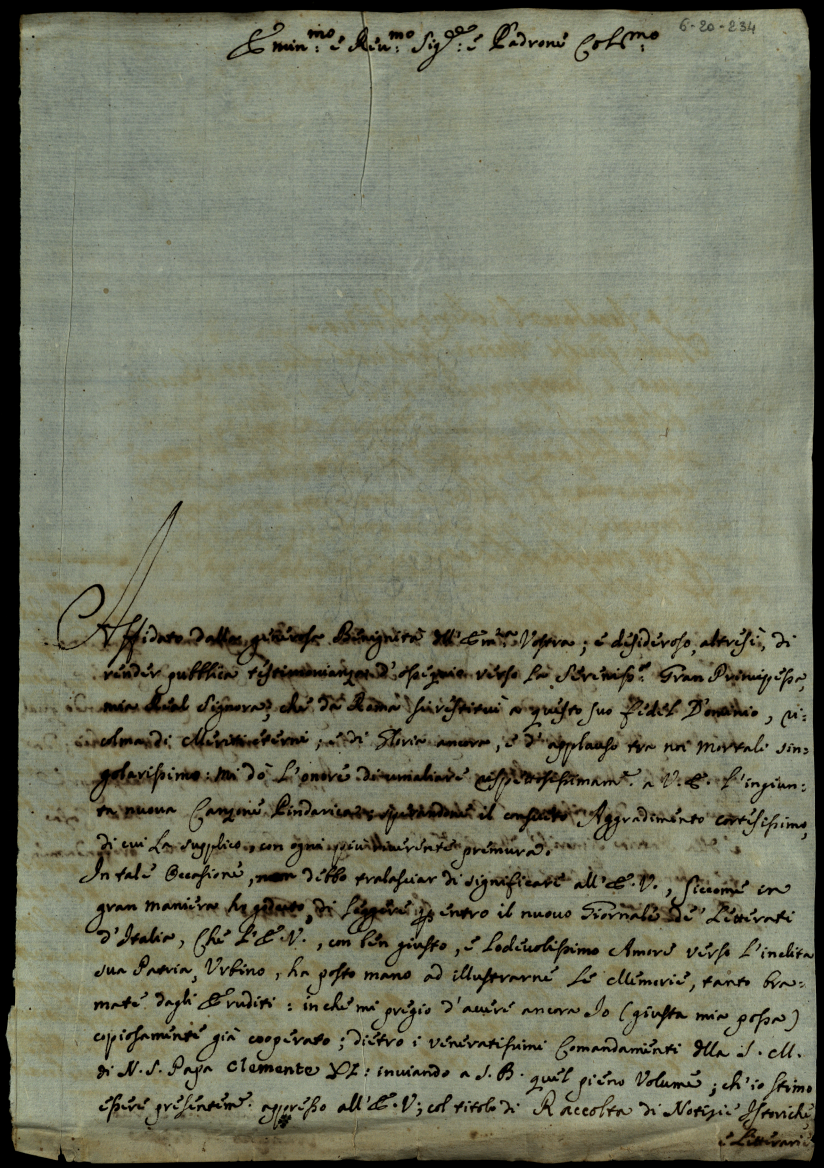 6-20-234
Emin.mo e Reu.mo Sig.re e Padrone Col.mo
Affidato dalla generosa Benignità dll'Em.za Vostra; e desideroso, altresì, di
render pubblica testimonianza d'ossequio verso la Sereniss.a Gran Principessa,
mia Real Signora; che da Roma si restituì a questo suo fedel Dominio, ri:
colma di Meriti eterni, e di Gloria ancora, e d'applauso tra noi mortali sin:
golarissimo: mi dò l'onore di umiliare rispettosissimam.e a V.E. l'ingiun:
ta nuova Canzone Pindarica; sperandone il consueto Aggradimento cortesissimo,
di cui La supplico, con ogni più riverente premura.
In tale Occasione, non debbo tralasciar di significare all'E.V., siccome in
gran maniera ho goduto, di leggere entro il nuovo Giornale de' Letterati
d'Italia, Che l'E.V., con ben giusto, e Lodevolissimo Amore verso l'inclita
sua Patria, Urbino, ha posto mano ad illustrarne le Memorie, tanto bra:
mate dagli Eruditi: in che mi pregio d'avere ancora Io (giusta mia possa)
copiosamente già cooperato; dietro i veneratissimi Comandamenti dlla S. M.
di N. S. Papa Clemente XI: inviando a S. B. quel pieno Volume; ch'io stimo
essere presentem.e appresso all'E.V; col titolo di Raccolta di Notizie Istoriche
e Letterarie